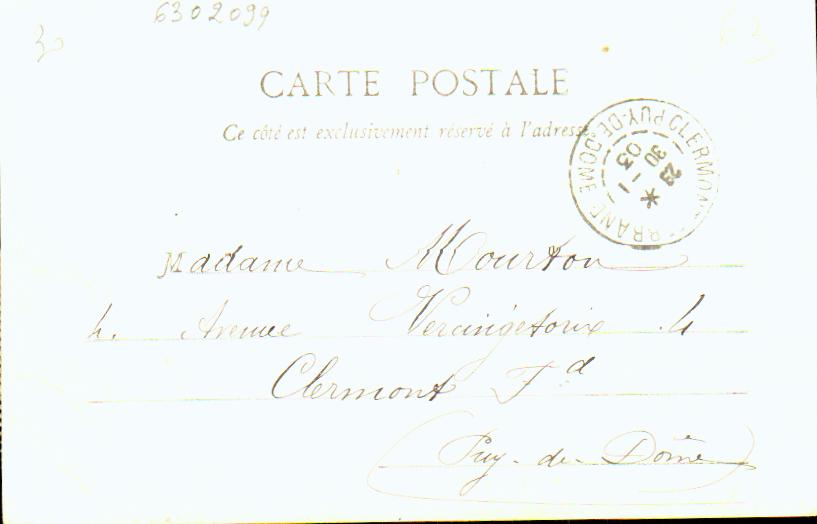 6302099
30
63
CARTE POSTALE
Ce côté est exclusivement réservé à l'adresse
CLERMONT RRAND PUY-DE-DOME
23 30
1 03
Madame Mourton
4. Avenue Vercingétorix . 4
Clermont Fd
(Puy-de-Dôme)